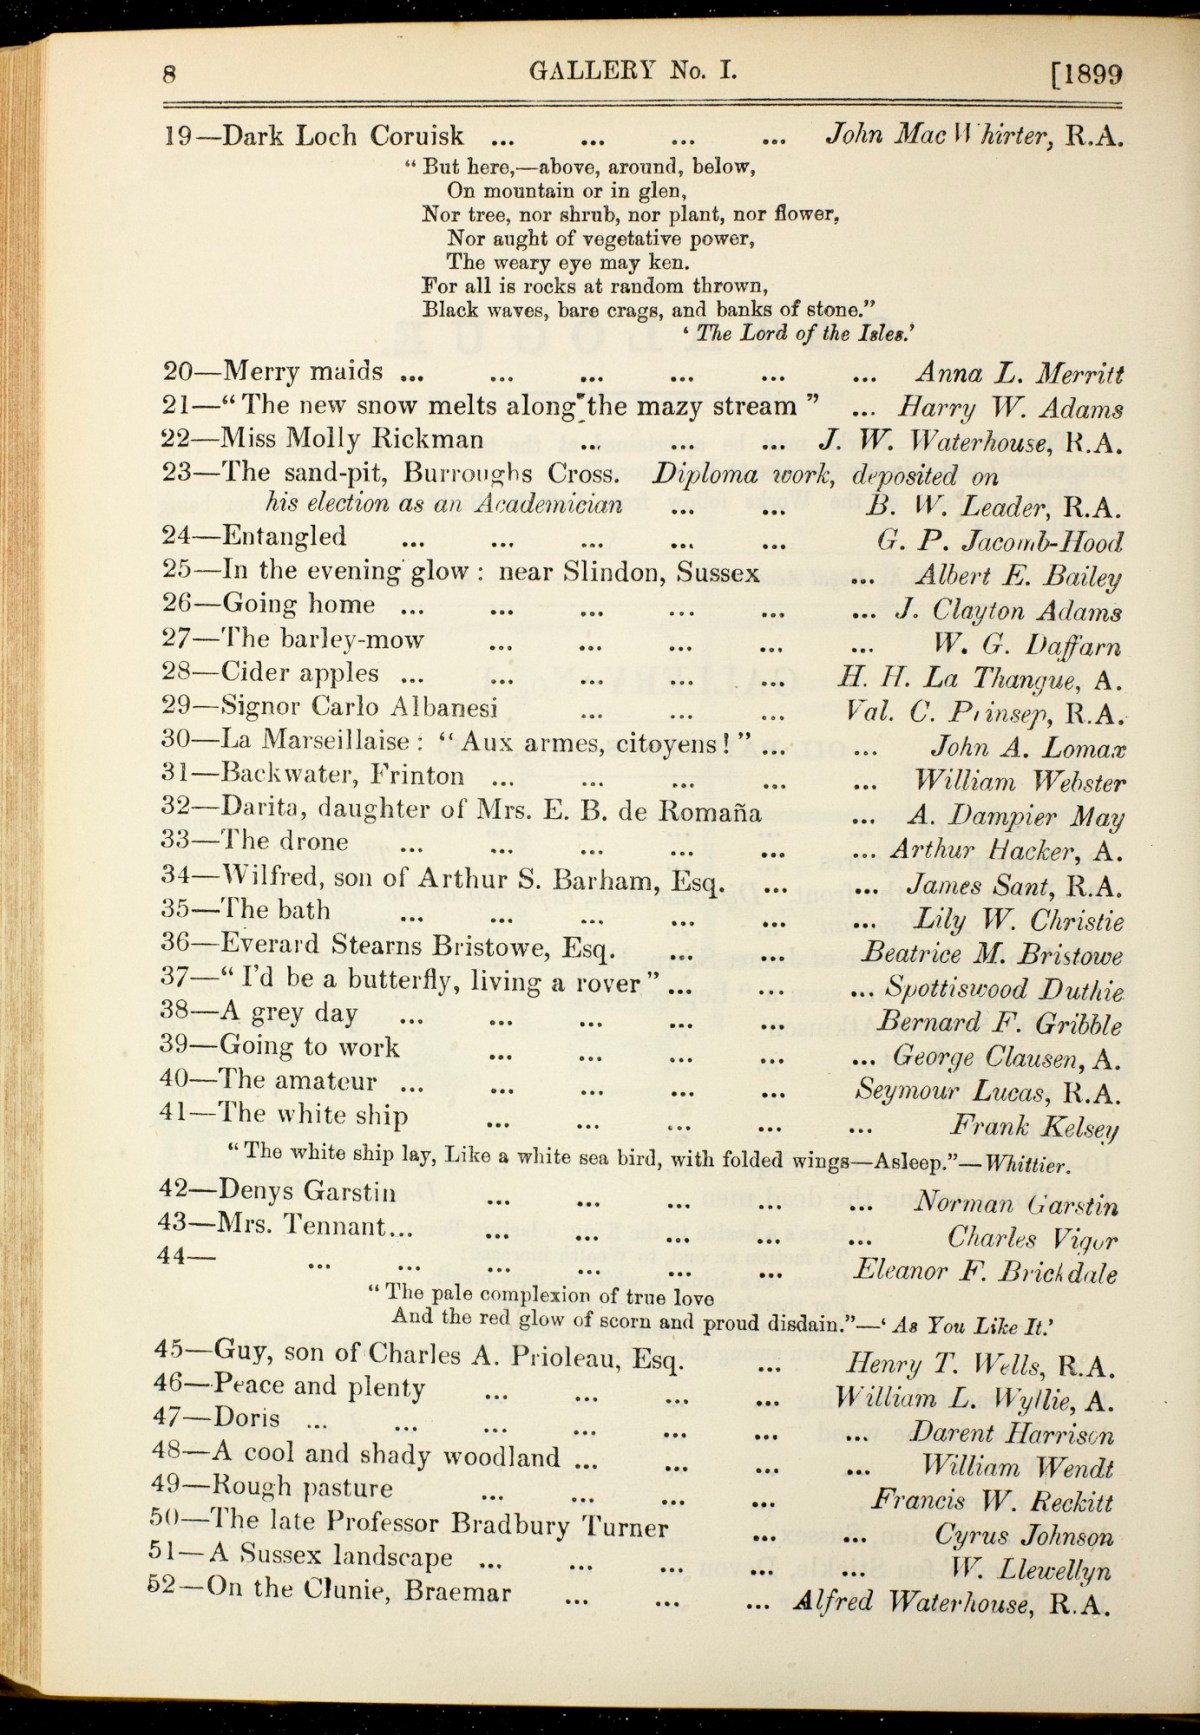 8 GALLERY No. I. [1899
19—Dark Loch Coruisk ... ... ... ... John MacWhirter, R.A.
“ But here,—above, around, below,
On mountain or in glen,
Nor tree, nor shrub, nor plant, nor flower,
Nor aught of vegetative power,
The weary eye may ken.
For all is rocks at random thrown,
Black waves, bare crags, and banks of stone.”
‘ The Lord of the Isles.’
20—Merry maids ... ... ... ... ... ... Anna L. Merritt
21—“ The new snow melts along the mazy stream ” ... Harry W. Adams
22—Miss Molly Rickman ... ... ... J. W. Waterhouse, R.A.
23—The sand-pit, Burroughs Cross. Diploma work, deposited on
his election as an Academician ... ... B. W. Leader, R.A.
24—Entangled ... ... ... ... ... G. P. Jacomb-Hood
25—In the evening glow : near Slindon, Sussex ... Albert E. Bailey
26—Going home ... ... ... ... ... ... J. Clayton Adams
27—The barley-mow ... ... ... ... ... W. G. Daffarn
28—Cider apples ... ... ... ... ... H. H. La Thangue, A.
29—Signor Carlo Albanesi ... ... ... Val. C. Prinsep, R.A.
30—La Marseillaise : “ Aux armes, citoyens ! ” ... ... John A. Lomax
31—Backwater, Frinton ... ... ... ... ... William Webster
32—Darita, daughter of Mrs. E. B. de Romaña ... A. Dampier May
33—The drone ... ... ... ... ... ... Arthur Hacker, A.
34—Wilfred, son of Arthur S. Barham, Esq. ... ... James Sant, R.A.
35—The bath ... ... ... ... ... ... Lily W. Christie
36—Everard Stearns Bristowe, Esq. ... ... Beatrice M. Bristowe
37—“ I’d be a butterfly, living a rover ” ... ... ... Spottiswood Duthie
38—A grey day ... ... ... ... ... Bernard F. Gribble
39—Going to work ... ... ... ... ... George Clausen, A.
40—The amateur ... ... ... ... ... Seymour Lucas, R.A.
41—The white ship ... ... ... ... ... Frank Kelsey
“ The white ship lay, Like a white sea bird, with folded wings—Asleep.”—Whittier.
42—Denys Garstin ... ... ... ... ... Norman Garstin
43—Mrs. Tennant... ... ... ... ... ... Charles Vigor
44— ... ... ... ... ... ... Eleanor F. Brickdale
“ The pale complexion of true love
And the red glow of scorn and proud disdain.”—‘ As You Like It.’
45—Guy, son of Charles A. Prioleau, Esq. ... Henry T. Wells, R.A.
46—Peace and plenty ... ... ... ... William L. Wyllie, A.
47—Doris ... ... ... ... ... ... ... Darent Harrison
48—A cool and shady woodland ... ... ... ... William Wendt
49—Rough pasture ... ... ... ... Francis W. Reckitt
50—The late Professor Bradbury Turner ... ... Cyrus Johnson
51—A Sussex landscape ... ... ... ... ... W. Llewellyn
52—On the Clunie, Braemar ... ... ... Alfred Waterhouse, R.A.